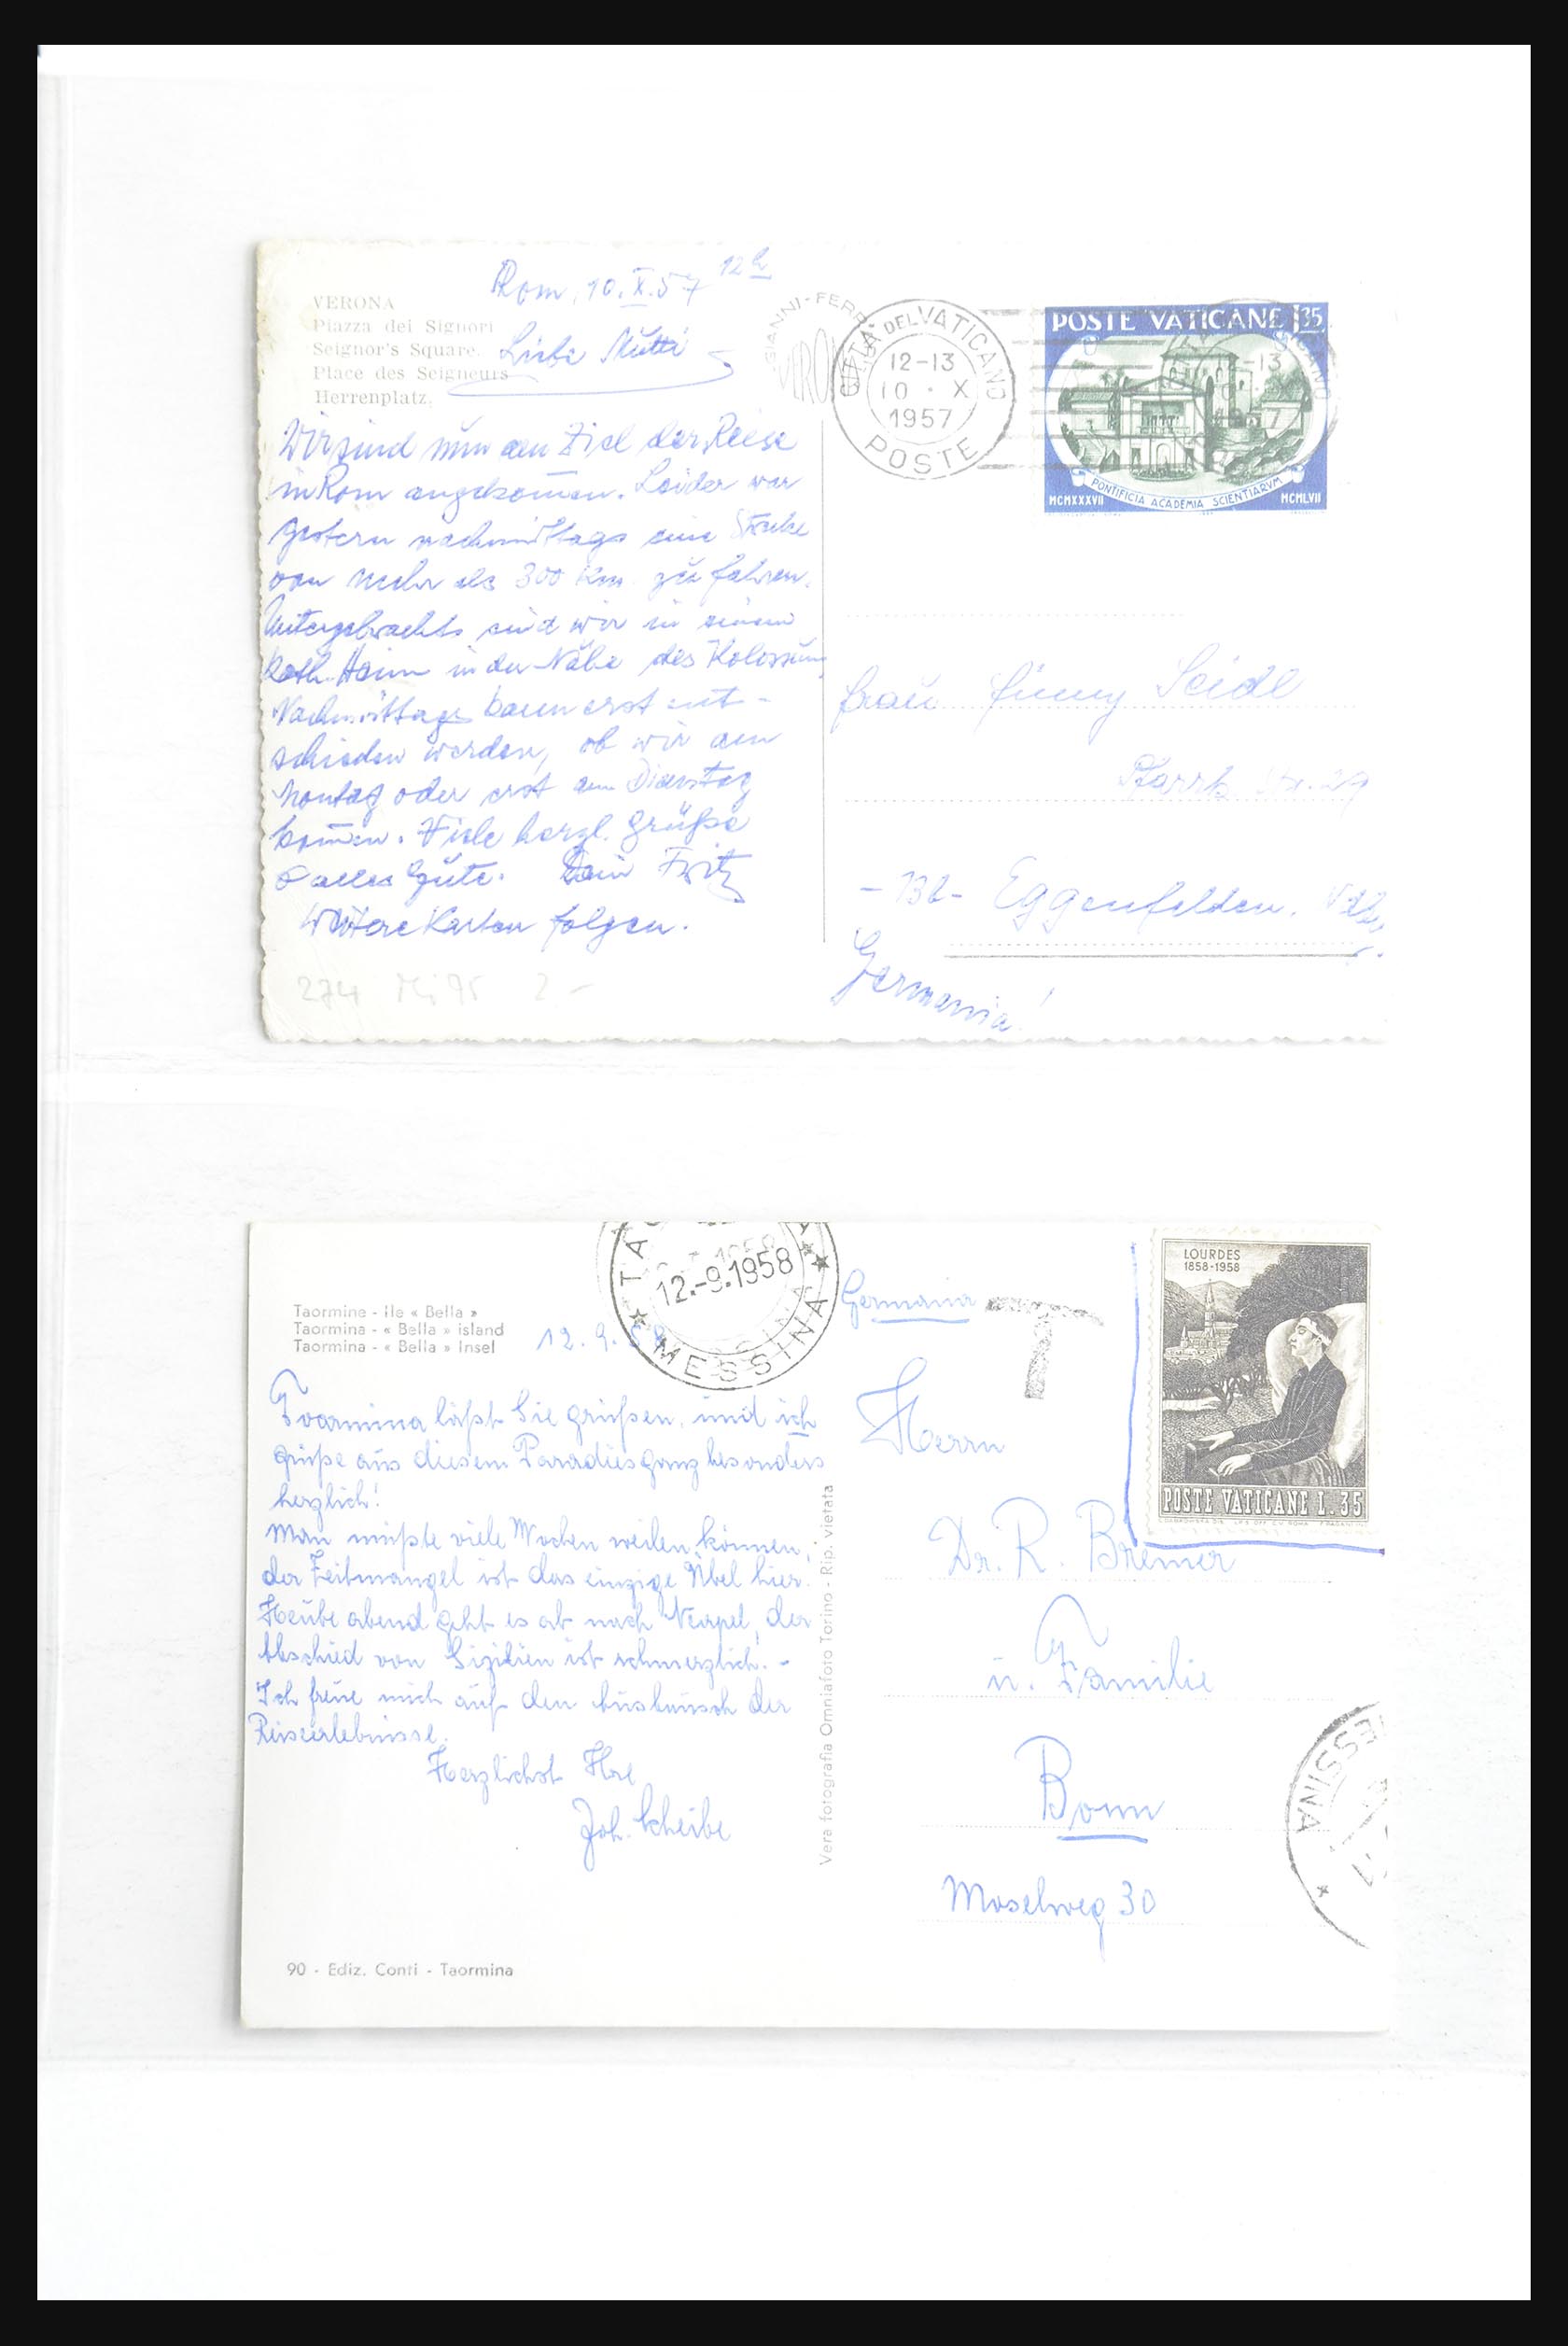 Rom, 10.X.57 12h
VERONA
Piazza dei Signori
Seignor's Square.
Place des Seigneurs
Herrenplatz.
Liebe Mutti
Wir sind nun am Ziel der Reise
in Rom angekommen. Leider war
gestern nachmittags eine Strecke
von mehr als 300 Km zu fahren.
Untergebracht sind wir in einem
kath. Heim in der Nähe des Kolosseums
Nachmittags kann erst ent-
schieden werden, ob wir am
Montag oder erst am Dienstag
kom̄en. Viele herzl. Grüße
alles Gute. Dein Fritz
Weitere Karten folgen.
274 Mi 95 2.-
GIANNI-FERR
VERO
CITTÀ DEL VATICANO
12-13
10 · X
1957
POSTE
POSTE VATICANE L35
PONTIFICIA ACADEMIA SCIENTIARVM
MCMXXXVII
MCMLVII
Frau Finny Seidl
Pfarrk. Str. 29
-13b- Eggenfelden.
Germania!
Taormine - Ile « Bella »
Taormina - « Bella » island
Taormina - « Bella » Insel
12.9.58
12.-9.1958
MESSINA
Taormina läßt Sie grüßen, und ich
grüße aus diesem Paradies ganz besonders
herzlich!
Man müßte viele Wochen weilen können,
der Zeitmangel ist das einzige Übel hier.
Heute abend geht es ab nach Neapel, der
Abschied von Sizilien ist schmerzlich. -
Ich freue mich auf den Austausch der
Reiseerlebnisse.
Herzlichst Ihre
Joh. Scheibe
90 - Ediz. Conti - Taormina
Vera fotografia Omniafoto Torino - Rip. vietata
Germania
T
LOURDES
1858-1958
POSTE VATICANE L.35
Herrn
Dr. R. Bremer
u. Familie
Bonn
Moselweg 30
MESSINA